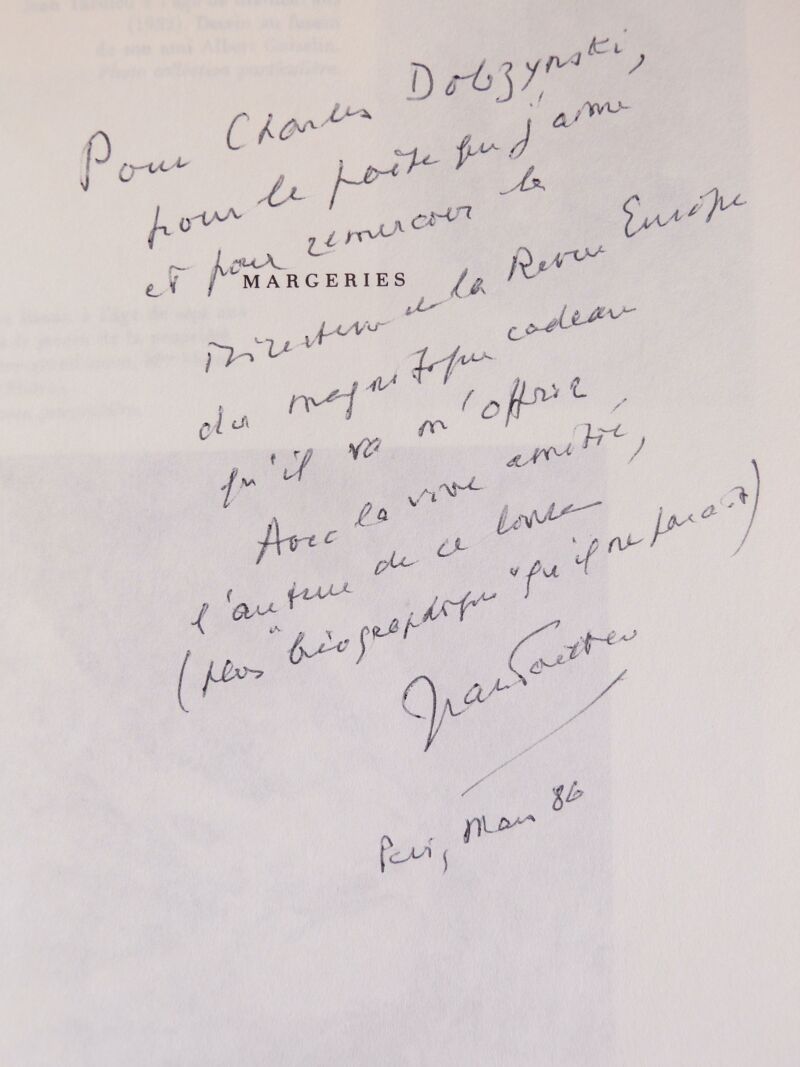 Jean Tardieu à l'âge de
(1932). Dessin au fusain
de son ami Albert Gosselin.
Photo collection particulière.
Pour Charles Dobzynski,
pour le poète que j'aime
et pour remercier le
MARGERIES
Directeur de la Revue Europe
du magnifique cadeau
qu'il va m'offrir
Avec la vive amitié,
l'auteur de ce livre
(plus "biographique" qu'il ne paraît)
Jean Tardieu
Paris, Mars 86